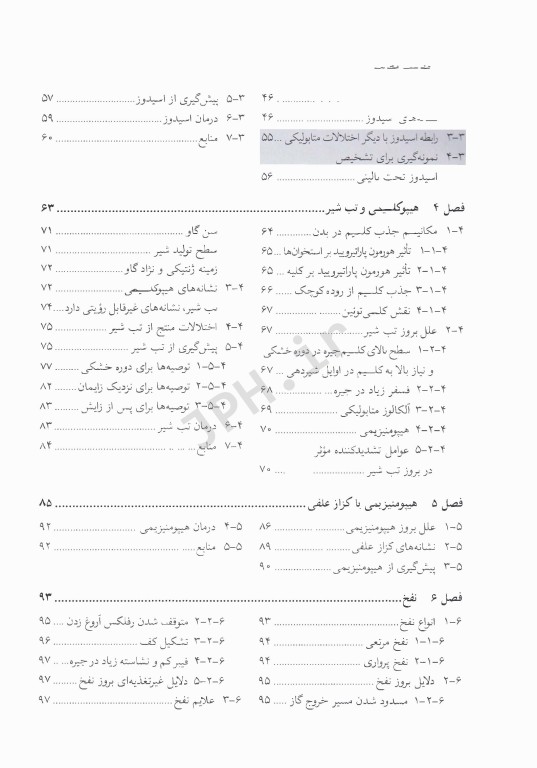 ۴۶
سیدوز ۴۶
۳-۳ رابطه اسیدوز با دیگر اختلالات متابولیکی ... ۵۵
۳-۴ نمونه‌گیری برای تشخیص
اسیدوز تحت بالینی ۵۶
۳-۵ پیش‌گیری از اسیدوز ۵۷
۳-۶ درمان اسیدوز ۵۹
۳-۷ منابع ۶۰
فصل ۴ هیپوکلسیمی و تب شیر ۶۳
۴-۱ مکانیسم جذب کلسیم در بدن ۶۴
۴-۱-۱ تأثیر هورمون پاراتیرویید بر استخوان‌ها ... ۶۵
۴-۱-۲ تأثیر هورمون پاراتیرویید بر کلیه ... ۶۵
۴-۱-۳ جذب کلسیم از روده کوچک ...... ۶۶
۴-۱-۴ نقش کلسی‌تونین ۶۷
۴-۲ علل بروز تب شیر ۶۷
۴-۲-۱ سطح بالای کلسیم جیره در دوره خشکی
و نیاز بالا به کلسیم در اوایل شیردهی ... ۶۷
۴-۲-۲ فسفر زیاد در جیره ۶۸
۴-۲-۳ آلکالوز متابولیکی ۶۹
۴-۲-۴ هیپومنیزیمی ۷۰
۴-۲-۵ عوامل تشدیدکننده مؤثر
در بروز تب شیر ۷۰
سن گاو ۷۱
سطح تولید شیر ۷۱
زمینه ژنتیکی و نژاد گاو ۷۲
۴-۳ نشانه‌های هیپوکلسیمی ۷۲
تب شیر، نشانه‌های غیرقابل رؤیتی دارد .... ۷۴
۴-۴ اختلالات منتج از تب شیر ۷۵
۴-۵ پیش‌گیری از تب شیر ۷۵
۴-۵-۱ توصیه‌ها برای دوره خشکی ۷۷
۴-۵-۲ توصیه‌ها برای نزدیک زایمان ۸۲
۴-۵-۳ توصیه‌ها برای پس از زایش ۸۳
۴-۶ درمان تب شیر ۸۳
۴-۷ منابع ۸۴
فصل ۵ هیپومنیزیمی یا کزاز علفی ۸۵
۵-۱ علل بروز هیپومنیزیمی ۸۶
۵-۲ نشانه‌های کزاز علفی ۸۹
۵-۳ پیش‌گیری از هیپومنیزیمی ۹۰
۵-۴ درمان هیپومنیزیمی ۹۲
۵-۵ منابع ۹۲
فصل ۶ نفخ ۹۳
۶-۱ انواع نفخ ۹۳
۶-۱-۱ نفخ مرتعی ۹۴
۶-۱-۲ نفخ پرواری ۹۴
۶-۲ دلایل بروز نفخ ۹۵
۶-۲-۱ مسدود شدن مسیر خروج گاز ..... ۹۵
۶-۲-۲ متوقف شدن رفلکس آروغ زدن .... ۹۵
۶-۲-۳ تشکیل کف ۹۶
۶-۲-۴ فیبر کم و نشاسته زیاد در جیره ۹۷
۶-۲-۵ دلایل غیرتغذیه‌ای بروز نفخ ۹۷
۶-۳ علایم نفخ ۹۷
JPH.ir